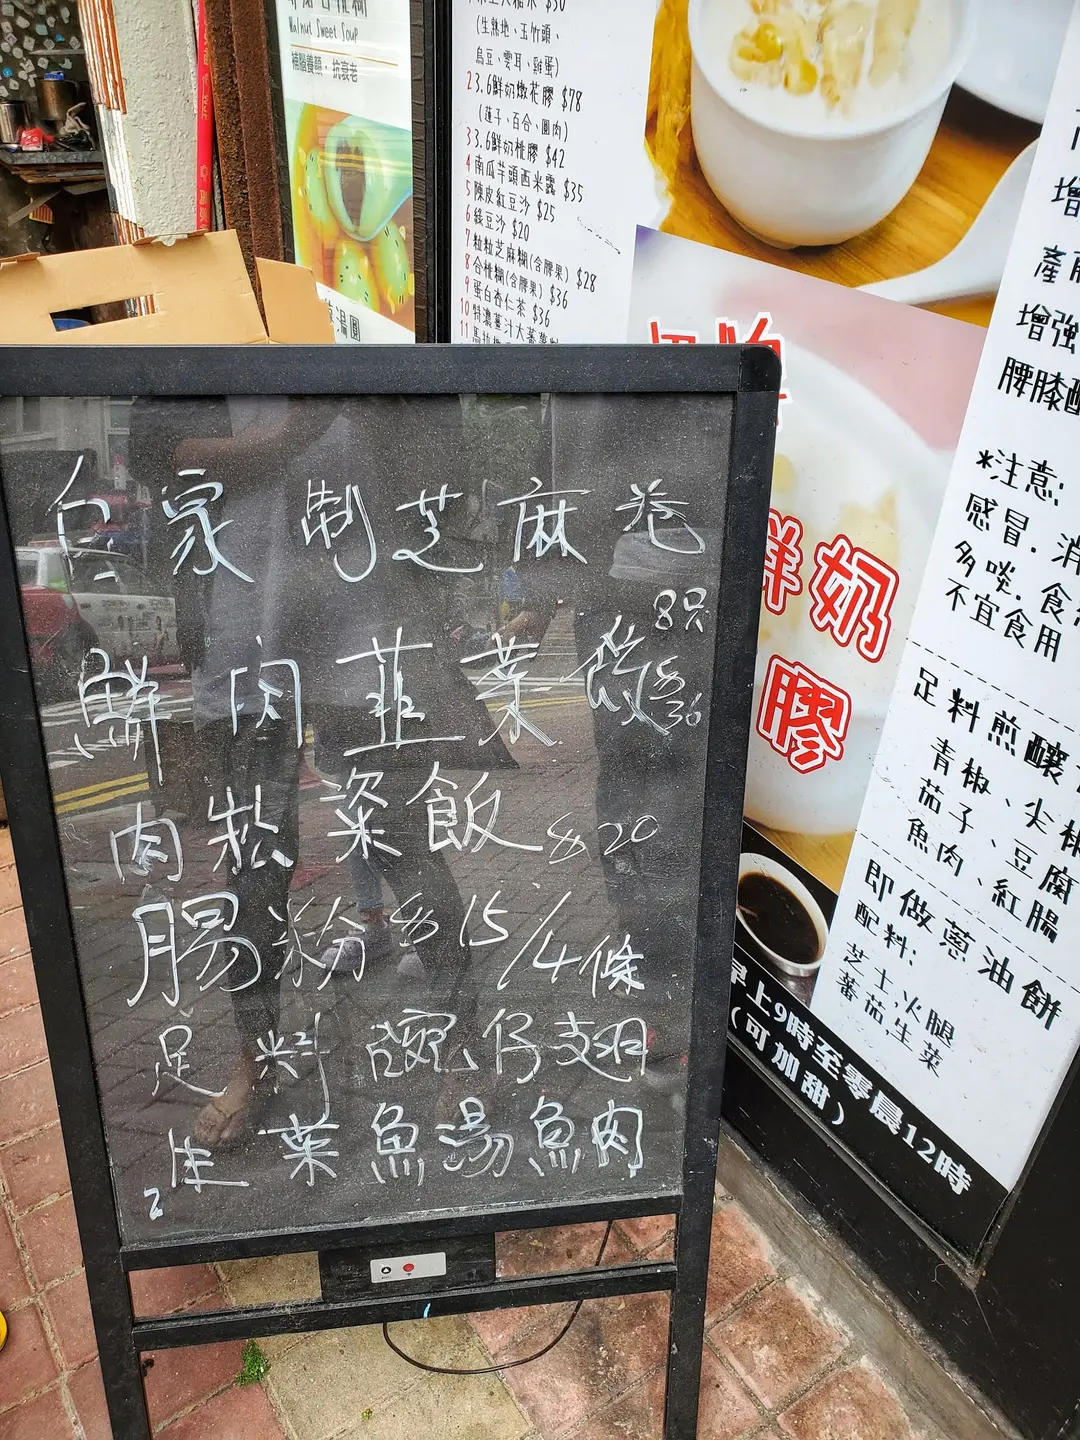 Walnut Sweet Soup
補腦養顏．抗衰老
湯圓
$30
(生熟地、玉竹頭、
烏豆、雲耳、雞蛋)
2 3.6鮮奶燉花膠 $78
(蓮子、百合、圓肉)
3 3.6鮮奶桃膠 $42
4 南瓜芋頭西米露 $35
5 陳皮紅豆沙 $25
6 綠豆沙 $20
7 粒粒芝麻糊(含膠果) $28
8 合桃糊(含膠果) $36
9 蛋白杏仁茶 $36
10 特濃薑汁大蕃薯
11
鮮奶
膠
增
產
增強
腰膝酸
*注意:
感冒．消
多啖．食
不宜食用
足料煎釀
青椒、尖椒
茄子、豆腐
魚肉、紅腸
即做蔥油餅
配料:
芝士,火腿
蕃茄,生菜
早上9時至零晨12時
(可加甜)
自家制芝麻卷
8只
鮮肉韮菜餃 $30
肉松粢飯 $20
腸粉 $15/4條
足料碗仔翅
生菜魚湯魚肉